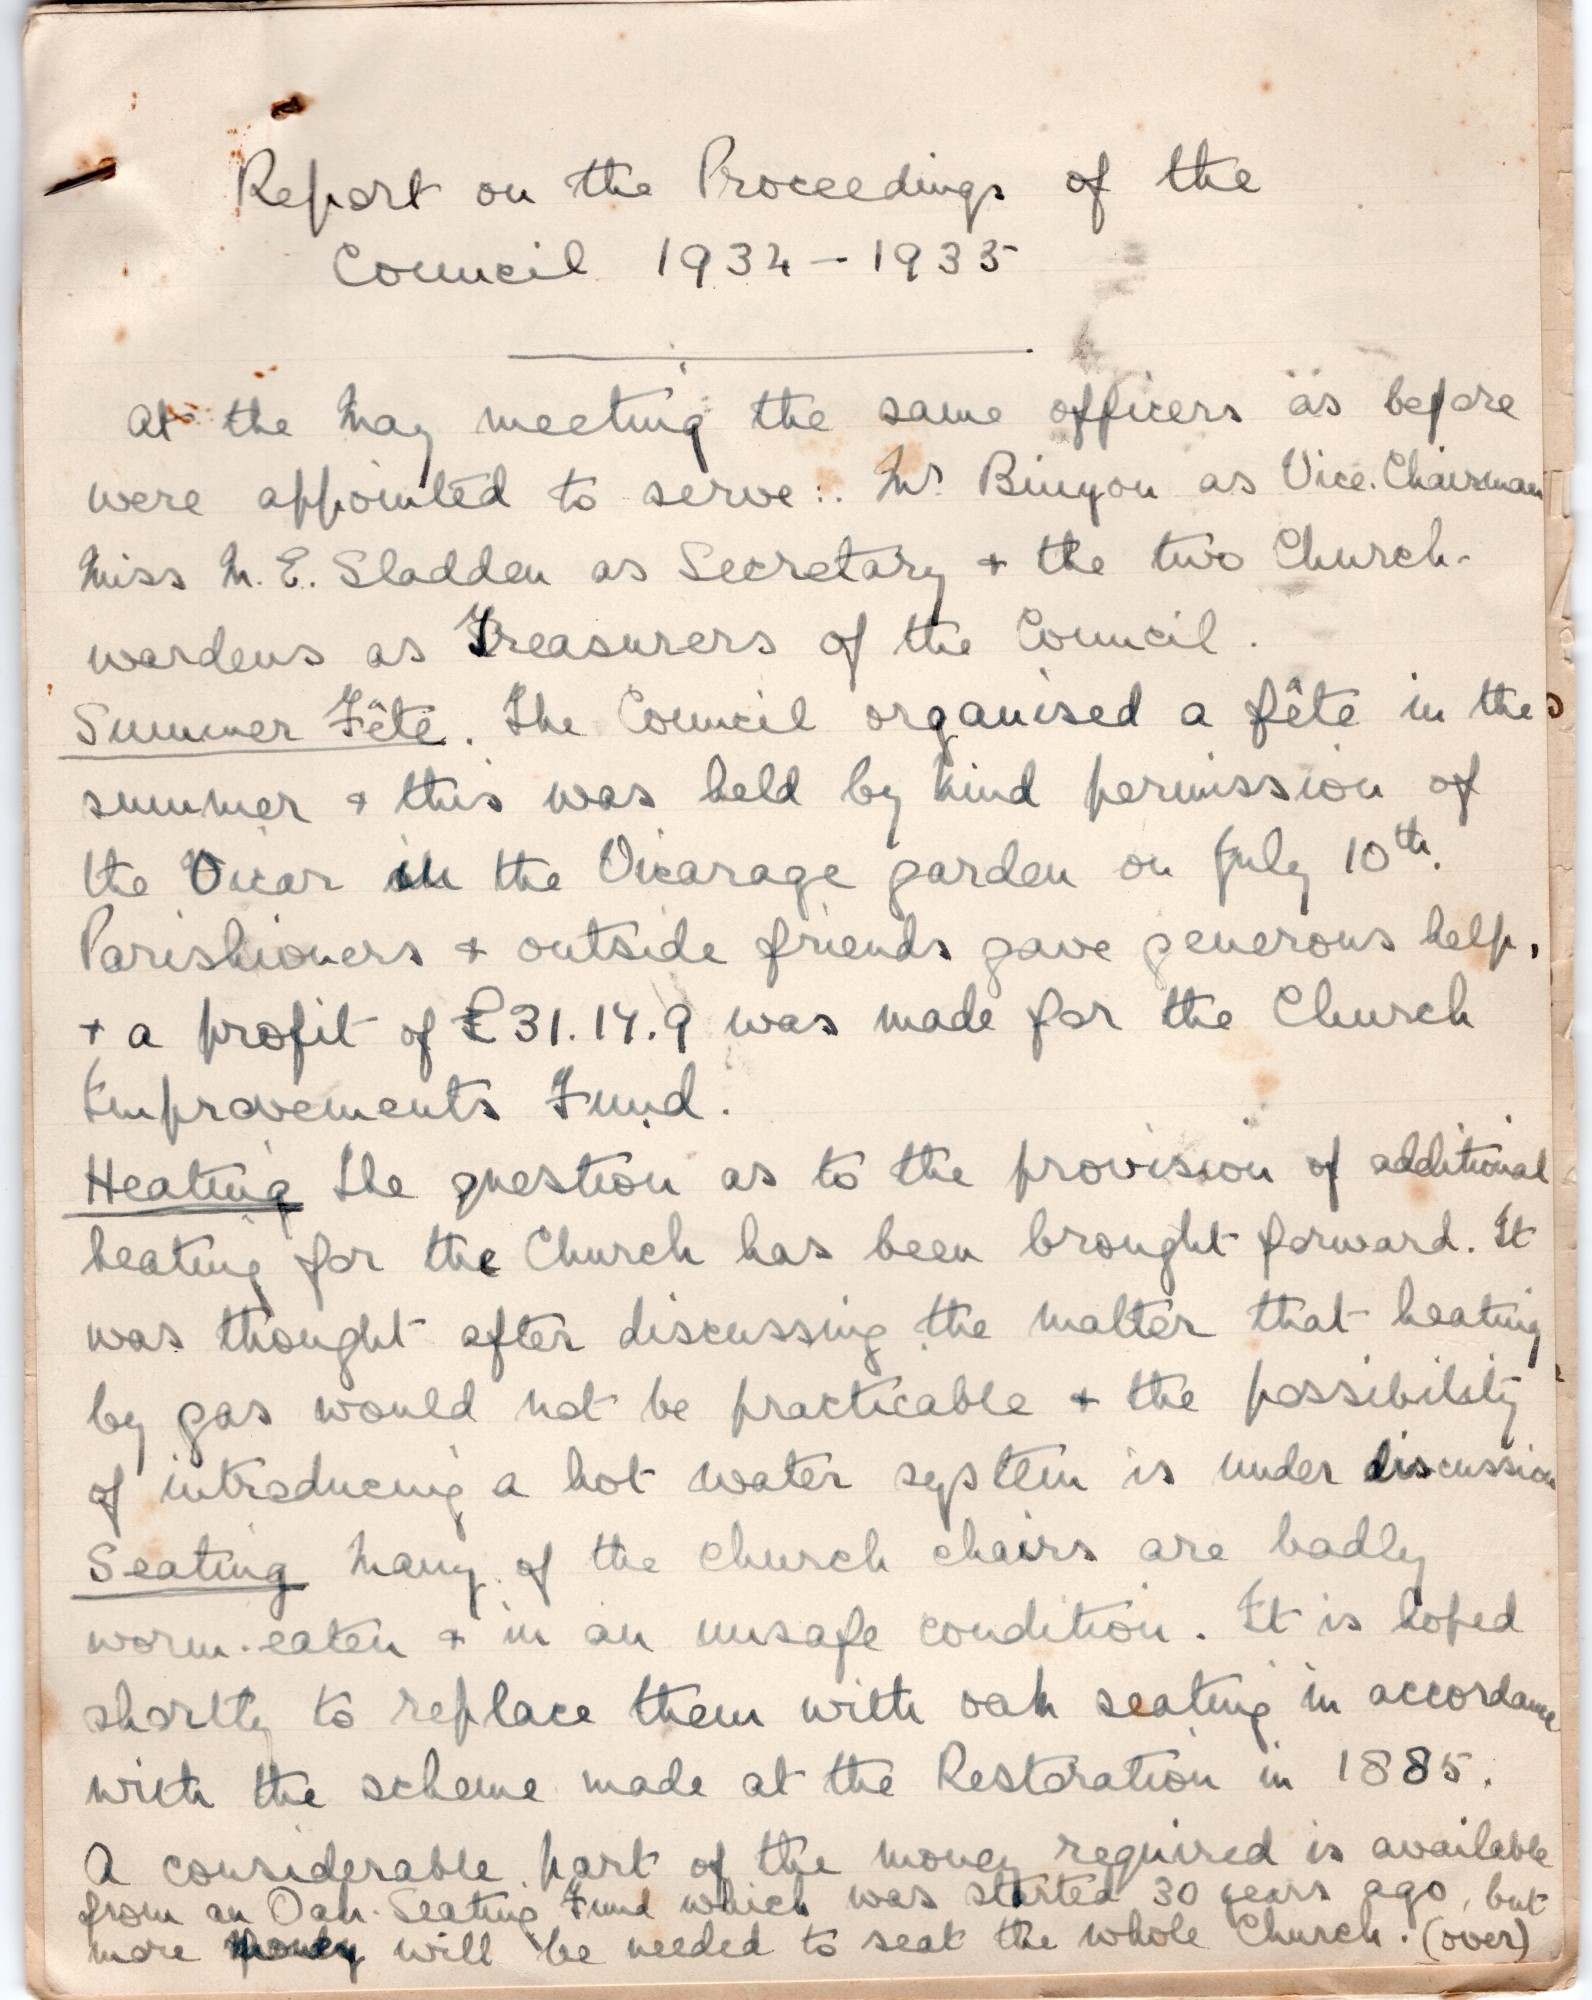 Report on the Proceedings of the
Council 1934 - 1935
At the May meeting the same officers as before
were appointed to serve:. Mr. Binyon as Vice. Chairman
Miss M. E. Sladden as Secretary + the two Church-
wardens as Treasurers of the Council.
Summer Fête. The Council organised a fête in the
summer + this was held by kind permission of
the Vicar in the Vicarage garden on July 10th.
Parishioners + outside friends gave generous help,
+ a profit of £31.14.9 was made for the Church
Improvements Fund.
Heating The question as to the provision of additional
heating for the Church has been brought forward. It
was thought after discussing the matter that heating
by gas would not be practicable + the possibility
of introducing a hot water system is under discussion
Seating Many of the church chairs are badly
worm-eaten + in an unsafe condition. It is hoped
shortly to replace them with oak seating in accordance
with the scheme made at the Restoration in 1885.
A considerable part of the money required is available
from an Oak-Seating Fund which was started 30 years ago, but
more money will be needed to seat the whole Church. (over)